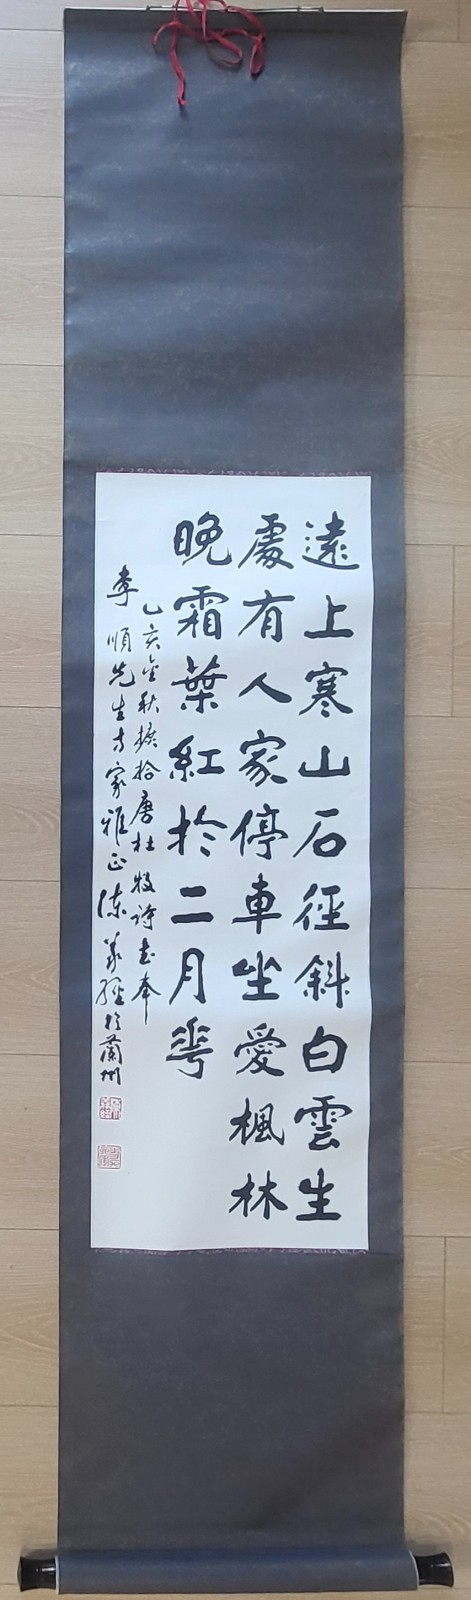 遠上寒山石徑斜白雲生
處有人家停車坐愛楓林
晚霜葉紅於二月花
乙亥金秋摭拾唐杜牧詩書奉
李順先生方家雅正 陳義經於蘭州